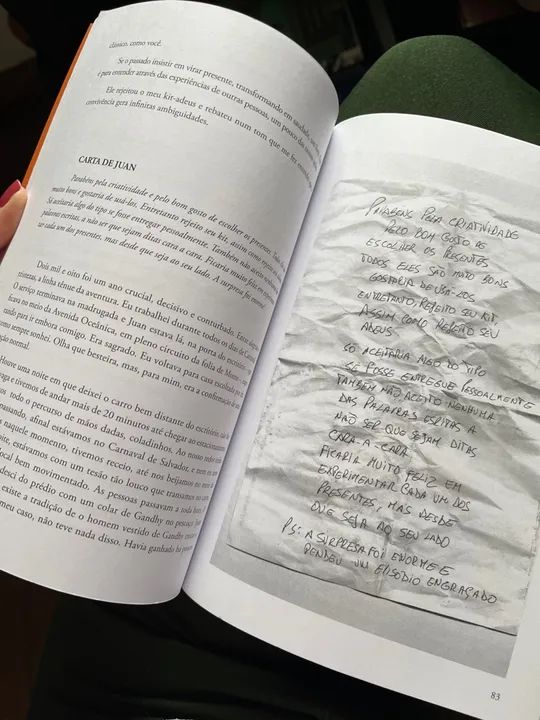 clássico, como você.
Se o passado insistir em virar presente, transformando em saudade,
é para entender através das experiências de outras pessoas, um pouco das
Ele rejeitou o meu kit-adeus e rebateu num tom que me fez
convivência gera infinitas ambiguidades.
CARTA DE JUAN
Parabéns pela criatividade e pelo bom gosto de escolher os presentes. Todos
muito bons e gostaria de usá-los. Entretanto rejeito seu kit, assim como rejeito
Só aceitaria algo do tipo se fosse entregar pessoalmente. Também não aceito
palavras escritas, a não ser que sejam ditas cara a cara. Ficaria muito feliz em
tar cada um dos presentes, mas desde que seja ao seu lado. A surpresa foi enorme
Dois mil e oito foi um ano crucial, decisivo e conturbado. Existe
tristezas, a linha tênue da aventura. Eu trabalhei durante todos os dias de
O serviço terminava na madrugada e Juan estava lá, na porta do escritório,
ficava no meio da Avenida Oceânica, em pleno circuito da folia de Momo,
rando para ir embora comigo. Era sagrado. Eu voltava para casa escoltada
como sempre sonhei. Olha que besteira, mas, para mim, era a confirmação de
ação normal.
Houve uma noite em que deixei o carro bem distante do escritório,
vaga e tivemos de andar mais de 20 minutos até chegar ao estacionamento
s, todo o percurso de mãos dadas, coladinhos. Ao nosso redor
passando, afinal estávamos no Carnaval de Salvador, e nem
a naquele momento, tivemos receio, até nos beijamos no meio
oite, estávamos com um tesão tão louco que transamos no carro,
local bem movimentado. As pessoas passavam a toda hora
desci do prédio com um colar de Gandhy no pescoço.
existe a tradição de o homem vestido de Gandhy
meu caso, não teve nada disso. Havia ganhado
PARABENS PELA CRIATIVIDADE
PELO BOM GOSTO DE
ESCOLHER OS PRESENTES
TODOS ELES SÃO MUITO BONS
GOSTARIA DE USA-LOS.
ENTRETANTO, REJEITO SEU KIT
ASSIM COMO REJEITO SEU
ADEUS.
SÓ ACEITARIA ALGO DO TIPO
SE FOSSE ENTREGUE PESSOALMENTE
TAMBÉM NÃO ACEITO NENHUMA
DAS PALAVRAS ESCRITAS A
NÃO SER QUE SEJAM DITAS
CARA-A-CARA
FICARIA MUITO FELIZ EM
EXPERIMENTAR CADA UM DOS
PRESENTES, MAS DESDE
QUE SEJA AO SEU LADO
PS: A SURPRESA FOI ENORME E
RENDEU UM EPISODIO ENGRAÇADO
83